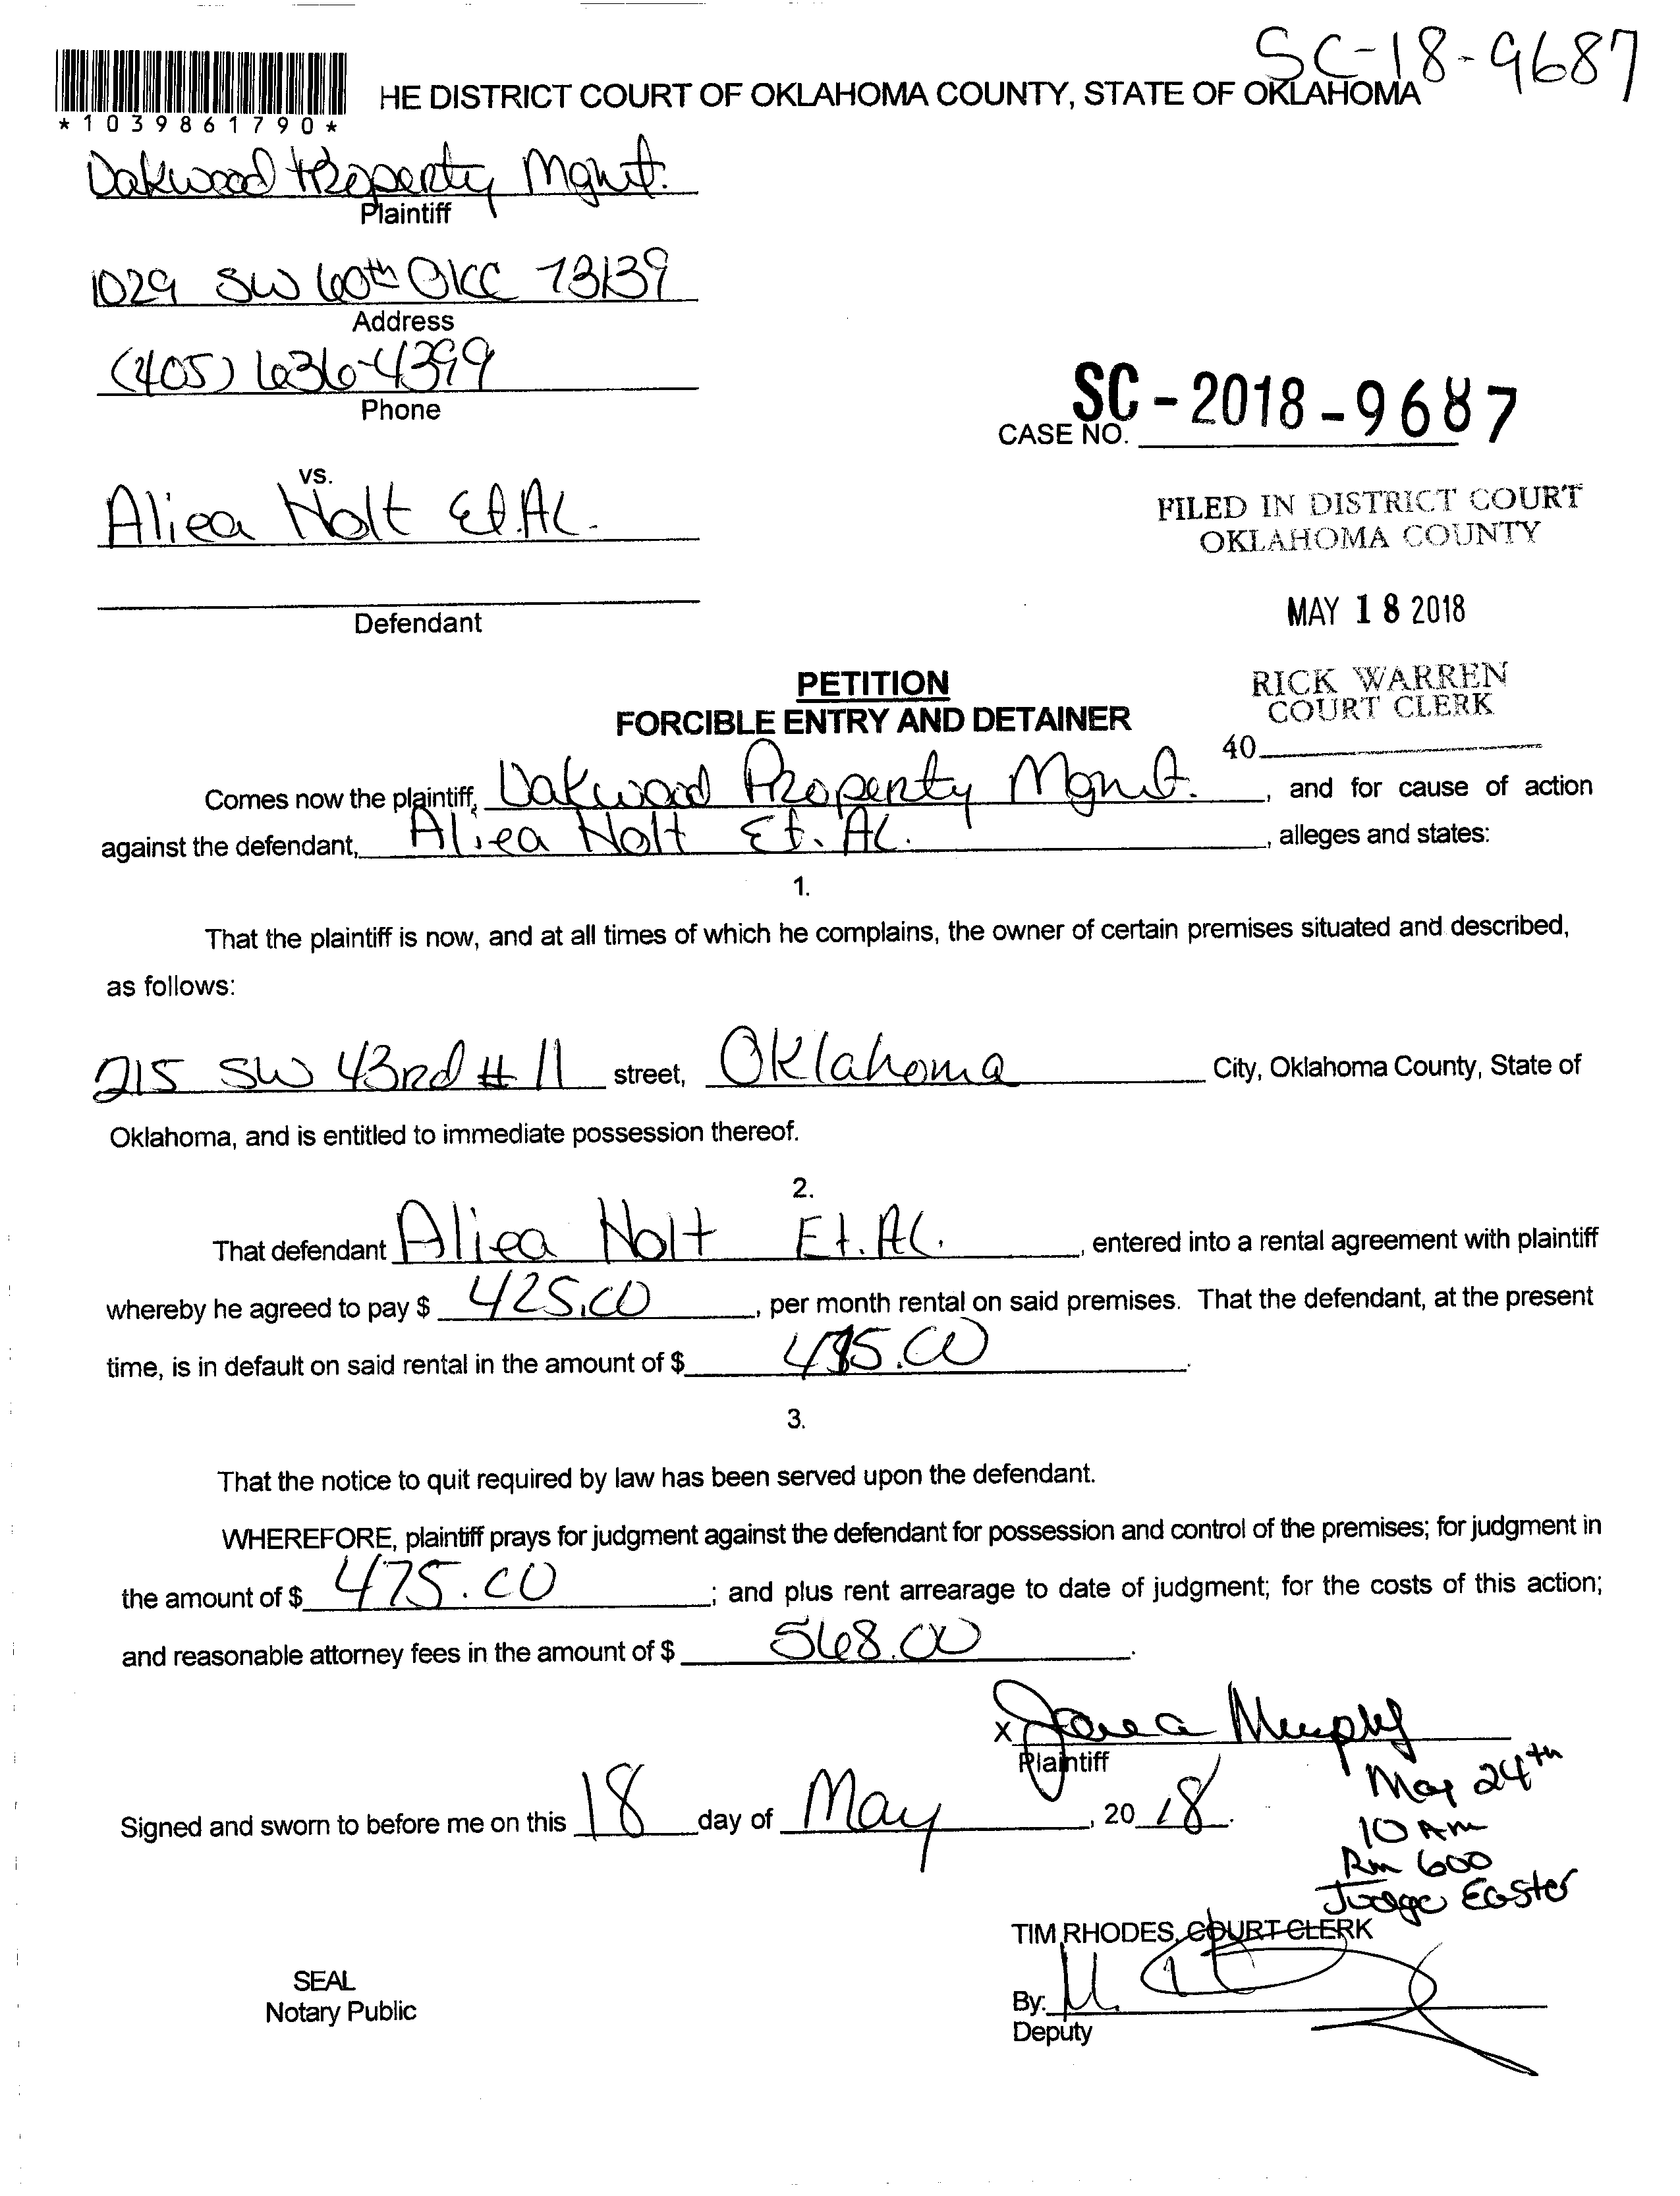 SC-18-9687
HE DISTRICT COURT OF OKLAHOMA COUNTY, STATE OF OKLAHOMA
*1039861790*
Oakwood Property Mgmt.
Plaintiff
1029 SW 60th OKC 73139
Address
(405) 636-4399
Phone
SC-2018-9687
CASE NO.
vs.
Aliea Nolt Et.AL.
FILED IN DISTRICT COURT
OKLAHOMA COUNTY
Defendant
MAY 18 2018
PETITION
FORCIBLE ENTRY AND DETAINER
RICK WARREN
COURT CLERK
40
Comes now the plaintiff, Oakwood Property Mgmt. , and for cause of action
against the defendant, Aliea Nolt Et. AL. , alleges and states:
1.
That the plaintiff is now, and at all times of which he complains, the owner of certain premises situated and described,
as follows:
215 SW 43rd # 11 street, Oklahoma City, Oklahoma County, State of
Oklahoma, and is entitled to immediate possession thereof.
2.
That defendant Aliea Nolt Et. AL. , entered into a rental agreement with plaintiff
whereby he agreed to pay $ 425.00 , per month rental on said premises. That the defendant, at the present
time, is in default on said rental in the amount of $ 475.00 .
3.
That the notice to quit required by law has been served upon the defendant.
WHEREFORE, plaintiff prays for judgment against the defendant for possession and control of the premises; for judgment in
the amount of $ 475.00 ; and plus rent arrearage to date of judgment; for the costs of this action;
and reasonable attorney fees in the amount of $ 568.00 .
x Murphy
Plaintiff
May 24th
Signed and sworn to before me on this 18 day of May , 2018.
10 AM
Rm 600
Judge Easter
TIM RHODES, COURT CLERK
SEAL
Notary Public
By:
Deputy